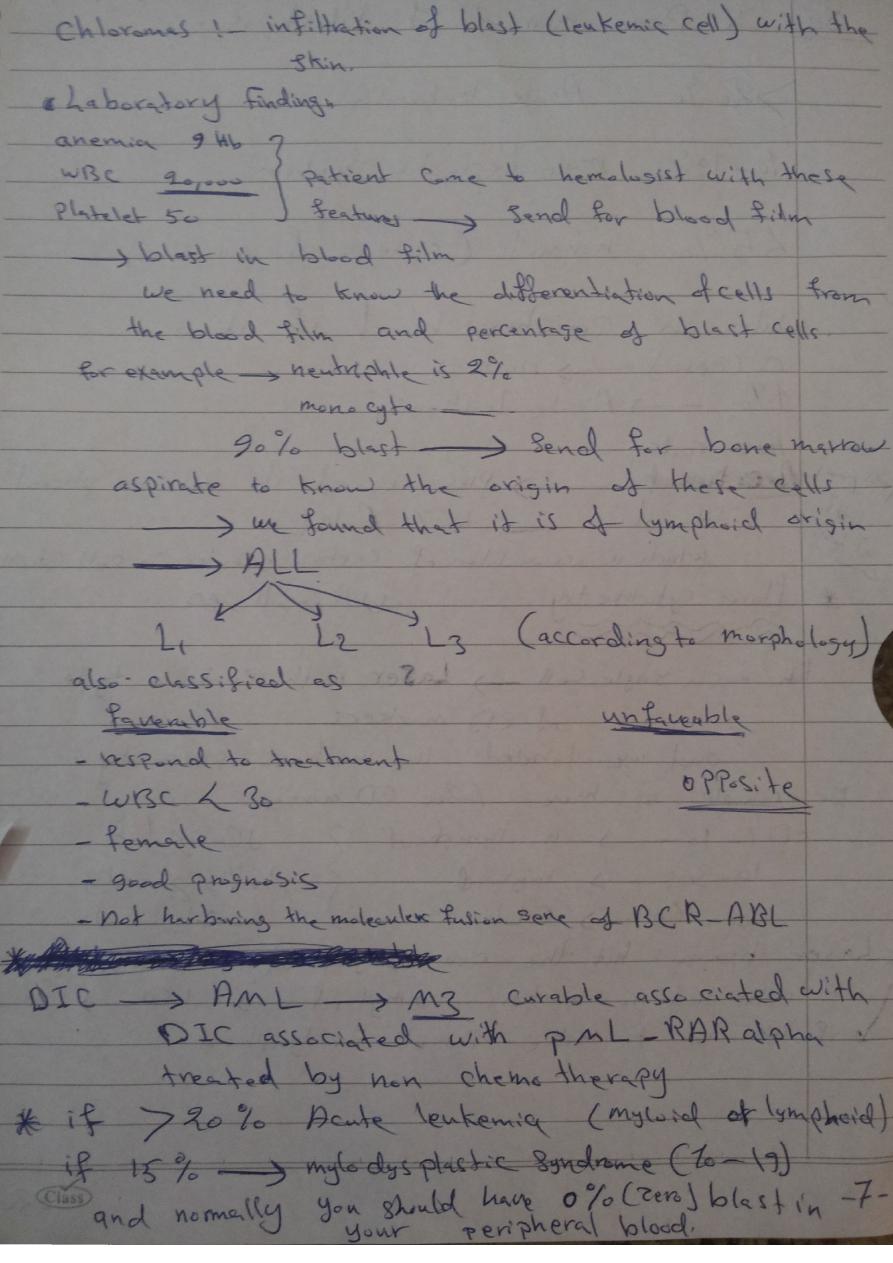 Chloromas :- infiltration of blast (leukemic cell) with the
skin.
Laboratory findings
anemia 9 Hb
WBC 90,000 patient come to hemologist with these
Platelet 50 features → send for blood film
→ blast in blood film
we need to know the differentiation of cells from
the blood film and percentage of blast cells.
for example → neutriphle is 2%
monocyte —
90% blast → send for bone marrow
aspirate to know the origin of these cells
→ we found that it is of lymphoid origin
→ ALL
L1 L2 L3 (according to morphology)
also classified as
faverable unfaveable
- respond to treatment
opposite
- WBC < 30
- female
- good prognosis
- not harburing the moleculer fusion gene of BCR-ABL
DIC → AML → M3 curable associated with
DIC associated with PML-RAR alpha
treated by non chemotherapy
* if > 20% Acute leukemia (myloid of lymphoid)
if 15% → mylodysplastic syndrome (10-19)
Class
and normally you should have 0% (zero) blast in -7-
your peripheral blood.